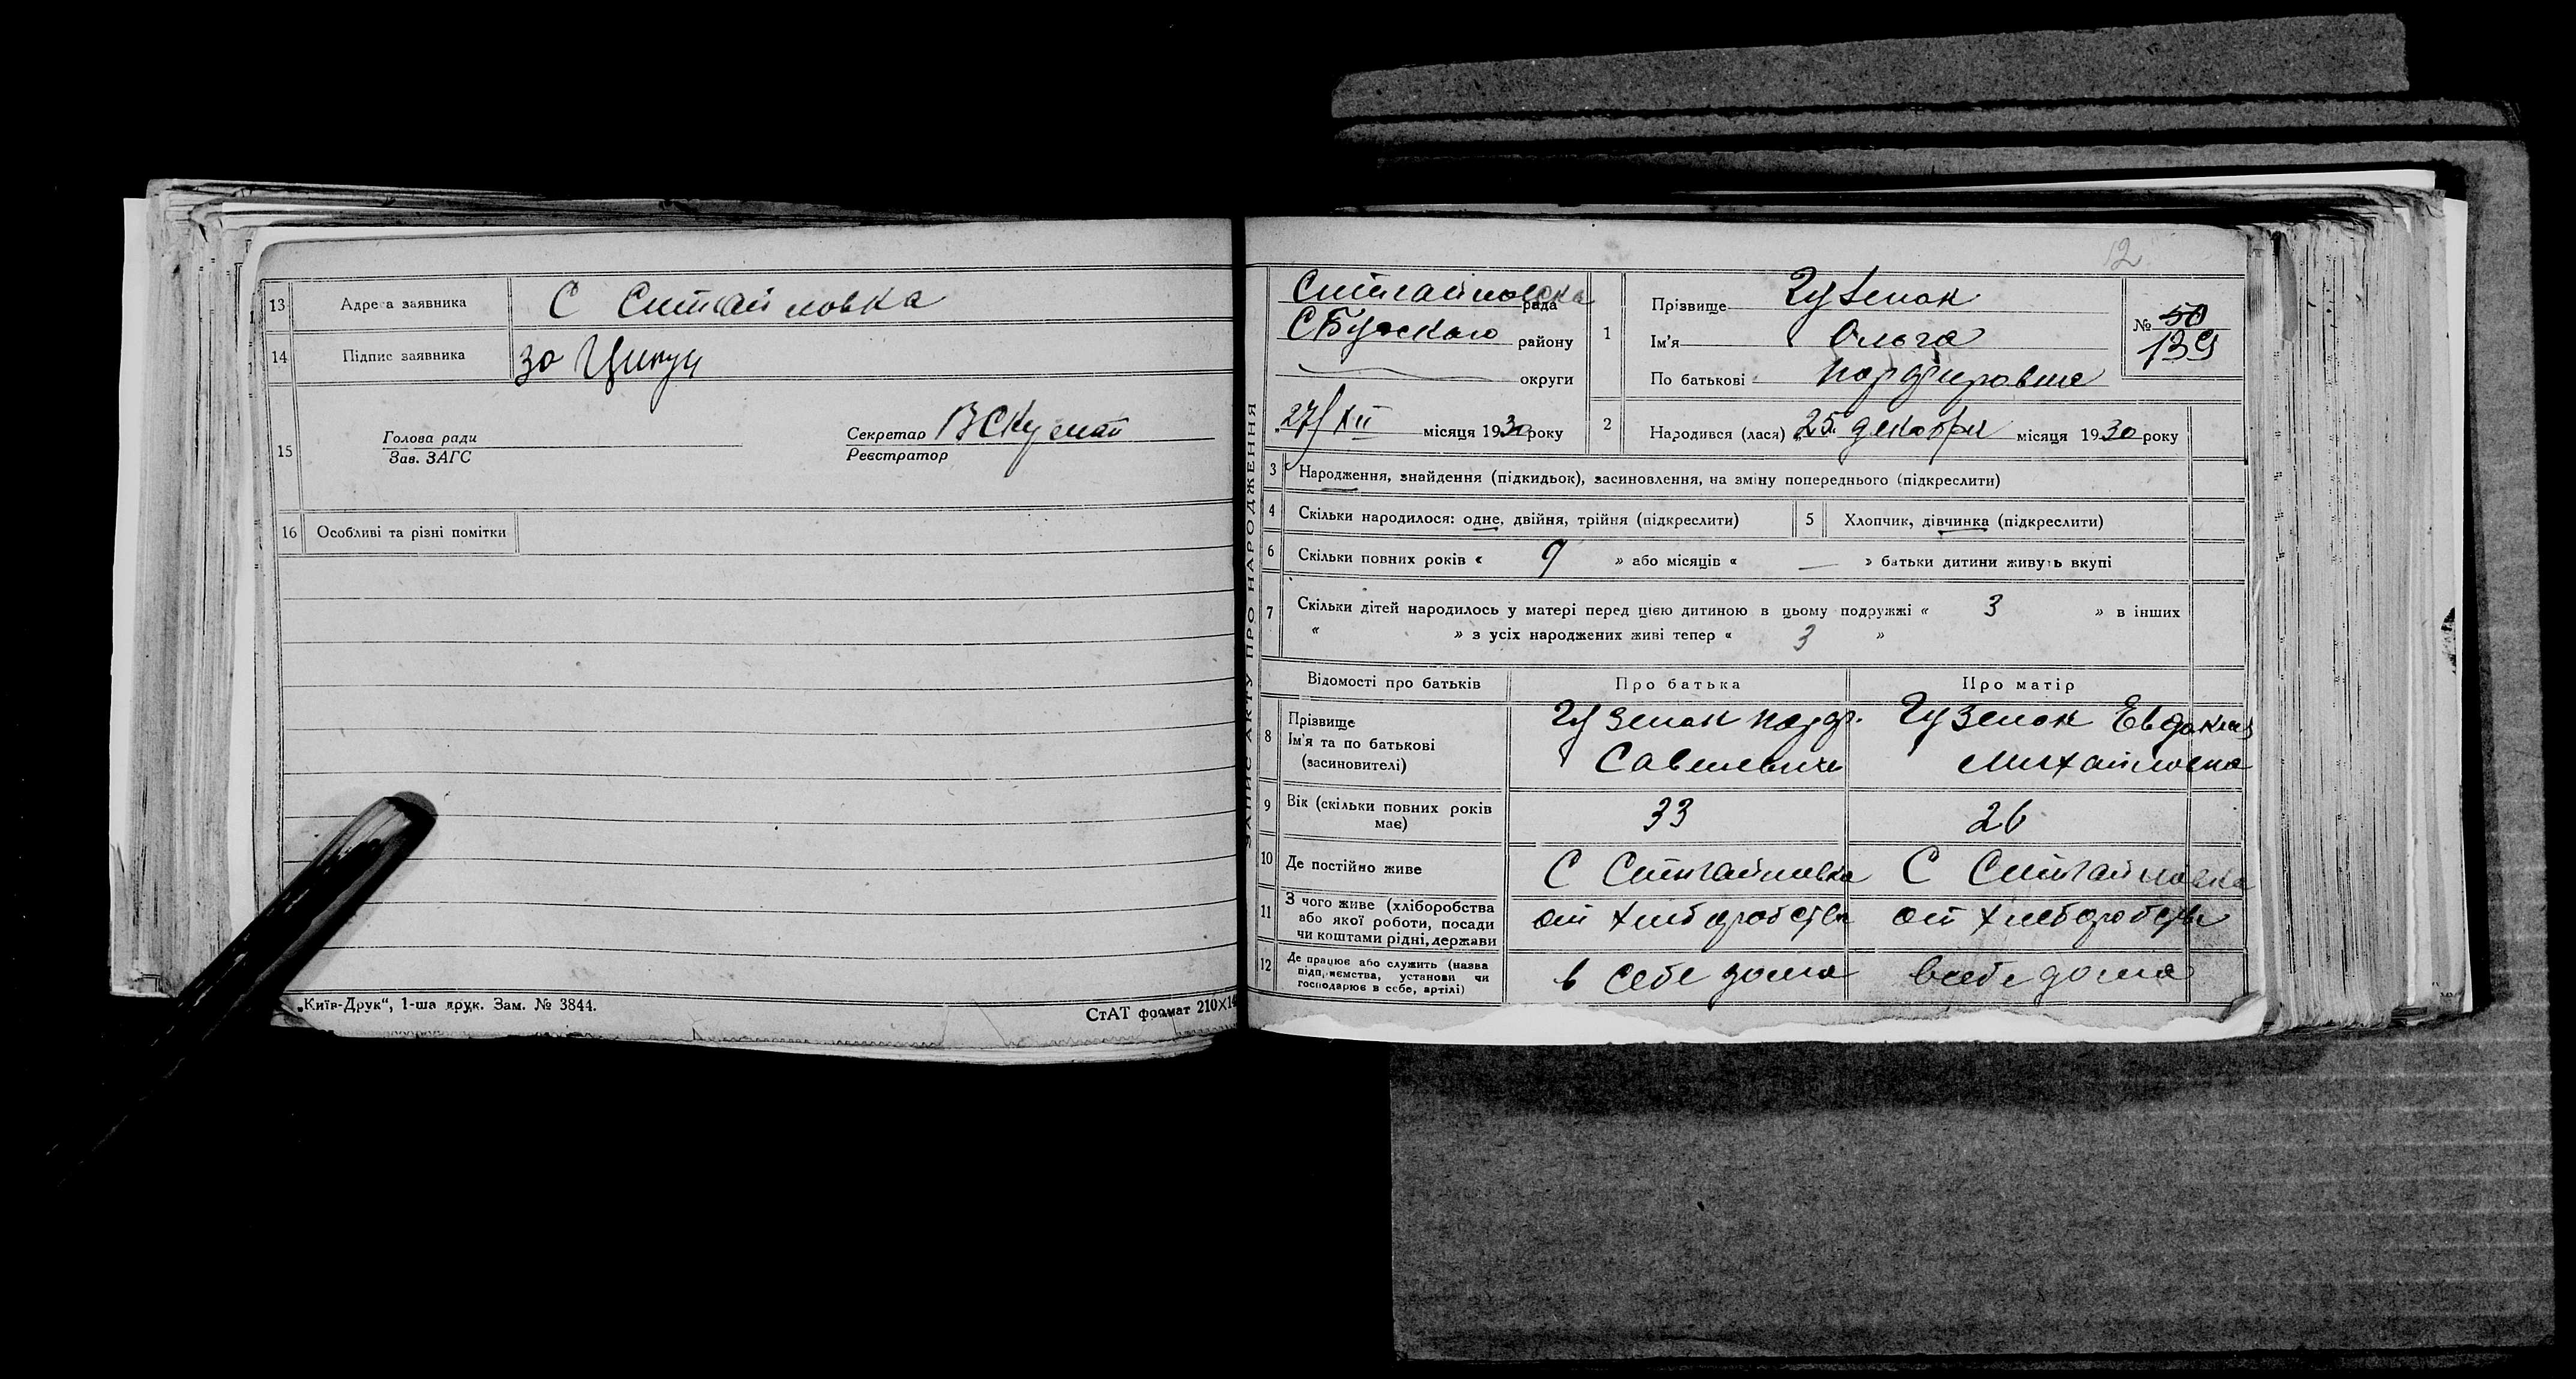 13 Адреса заявника С Ситайловка
14 Підпис заявника за
15 Голова ради
Зав. ЗАГС
Секретар ВСКузмат
Реєстратор
16 Особливі та різні помітки
„Київ-Друк“, 1-ша друк. Зам. № 3844.
СтАТ формат 210X14
ЗАПИС АКТУ ПРО НАРОДЖЕННЯ
12
рада
району
округи
27/XII місяця 1930 року
1 Прізвище Гузенок
Ім'я Ольга
По батькові Порфировна
№ 50
139
2 Народився (лася) 25 декабри місяця 1930 року
3 Народження, знайдення (підкидьок), засиновлення, на зміну попереднього (підкреслити)
4 Скільки народилося: одне, двійня, трійня (підкреслити) 5 Хлопчик, дівчинка (підкреслити)
6 Скільки повних років « 9 » або місяців « — » батьки дитини живуть вкупі
7 Скільки дітей народилось у матері перед цією дитиною в цьому подружжі « 3 » в інших
« » з усіх народжених живі тепер « 3 »
Відомості про батьків Про батька Про матір
8 Прізвище
Ім'я та по батькові
(засиновителі)
Гузенок Порф.
Савелевич
Гузенок Евдокия
Михайловна
9 Вік (скільки повних років
має)
33 26
10 Де постійно живе С Ситайловка С Ситайловка
11 З чого живе (хліборобства
або якої роботи, посади
чи коштами рідні, держави
от хлеборобства от хлеборобства
12 Де працює або служить (назва
підприємства, установи чи
господарює в себе, артілі)
в себе дома в себе дома